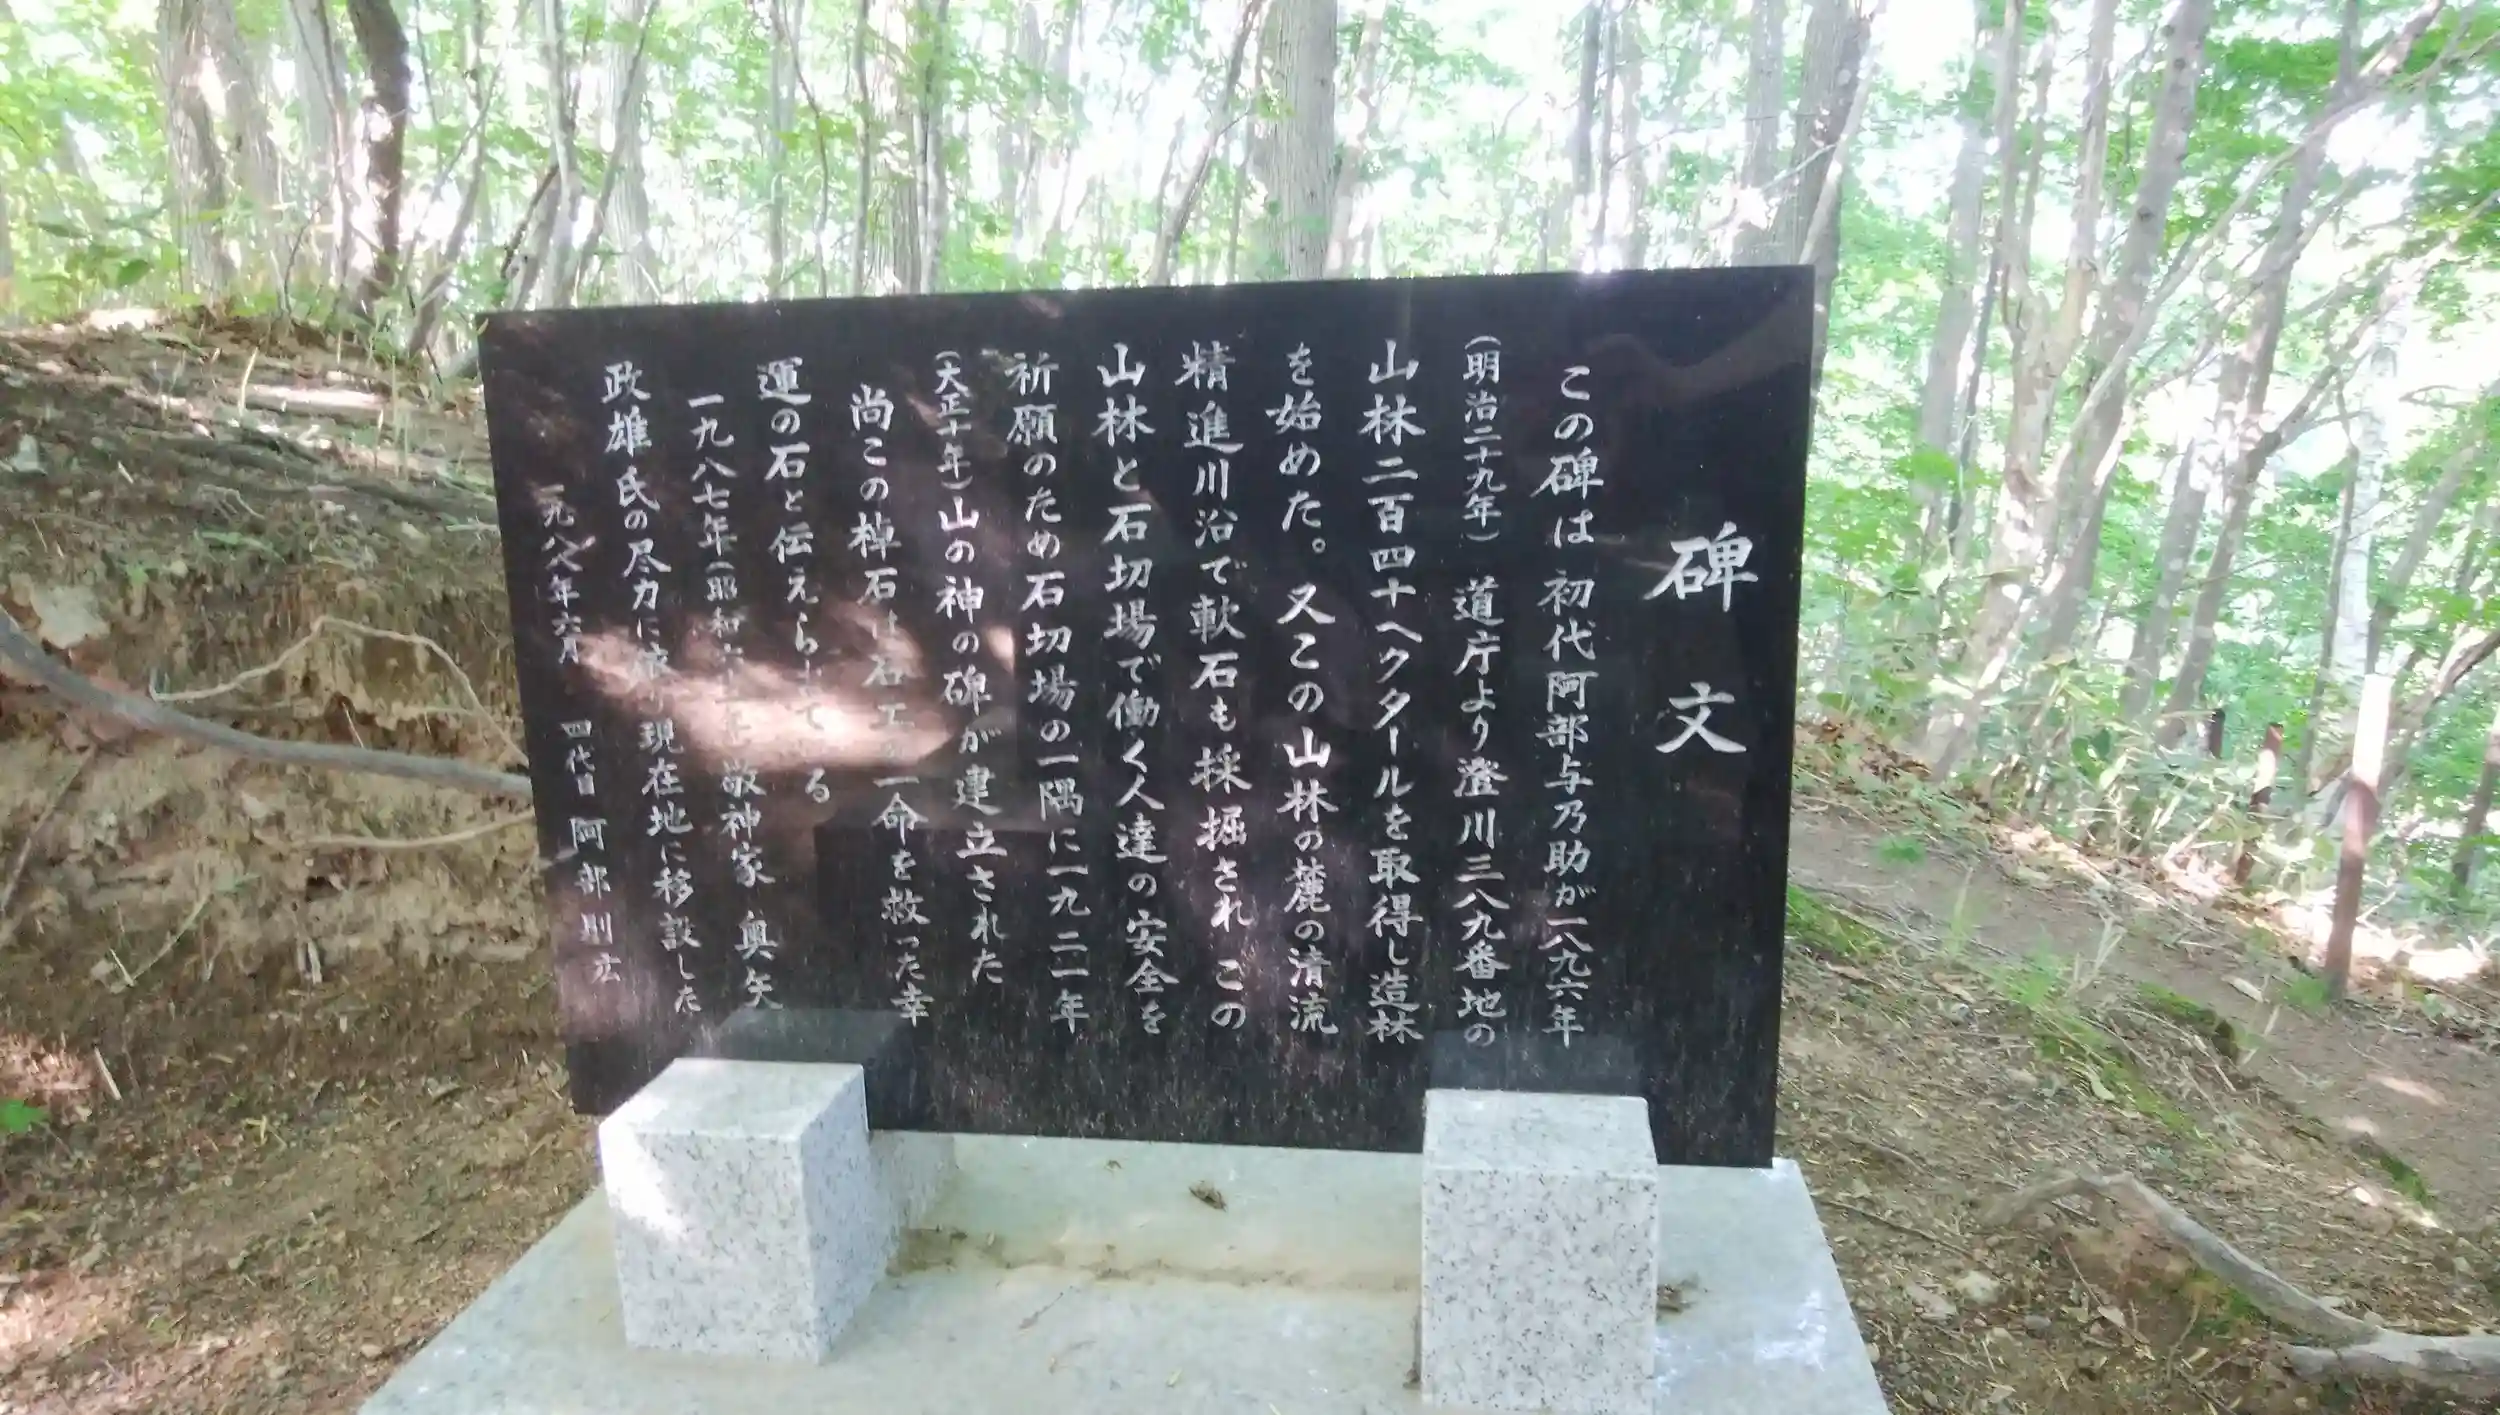 碑文
この碑は初代阿部与乃助が一八九六年
(明治二十九年)道庁より澄川三八九番地の
山林二百四十ヘクタールを取得し造林
を始めた。又この山林の麓の清流
精進川沿で軟石も採掘されこの
山林と石切場で働く人達の安全を
祈願のため石切場の一隅に一九二一年
(大正十年)山の神の碑が建立された
尚この棹石は石工の一命を救った幸
運の石と伝えられている
一九八七年(昭和六十二年)敬神家 奥矢
政雄氏の尽力に 現在地に移設した
一九八八年六月 四代目 阿部則広